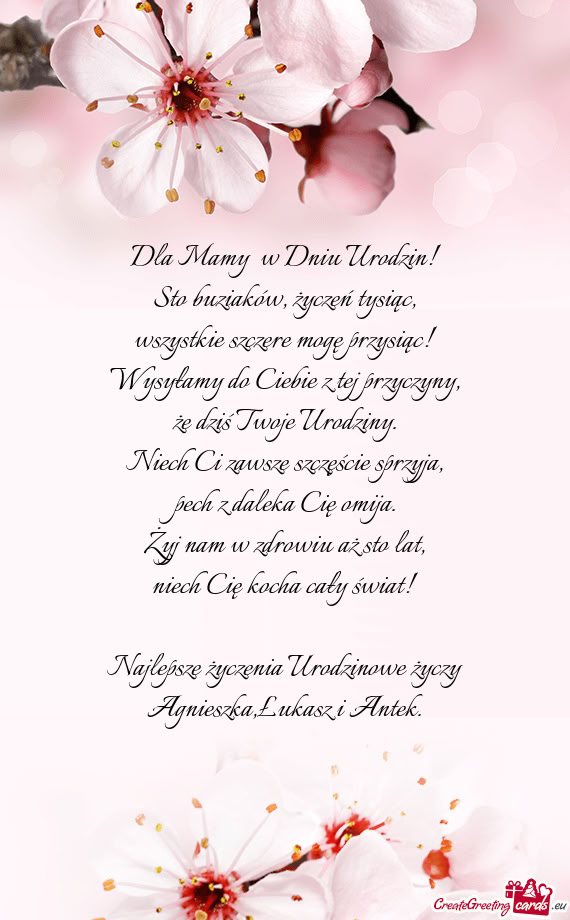 Dla Mamy w Dniu Urodzin!
Sto buziaków, życzeń tysiąc,
wszystkie szczere mogę przysiąc!
Wysyłamy do Ciebie z tej przyczyny,
że dziś Twoje Urodziny.
Niech Ci zawsze szczęście sprzyja,
pech z daleka Cię omija.
Żyj nam w zdrowiu aż sto lat,
niech Cię kocha cały świat!
Najlepsze życzenia Urodzinowe życzy
Agnieszka,Łukasz i Antek.
CreateGreeting cards .eu